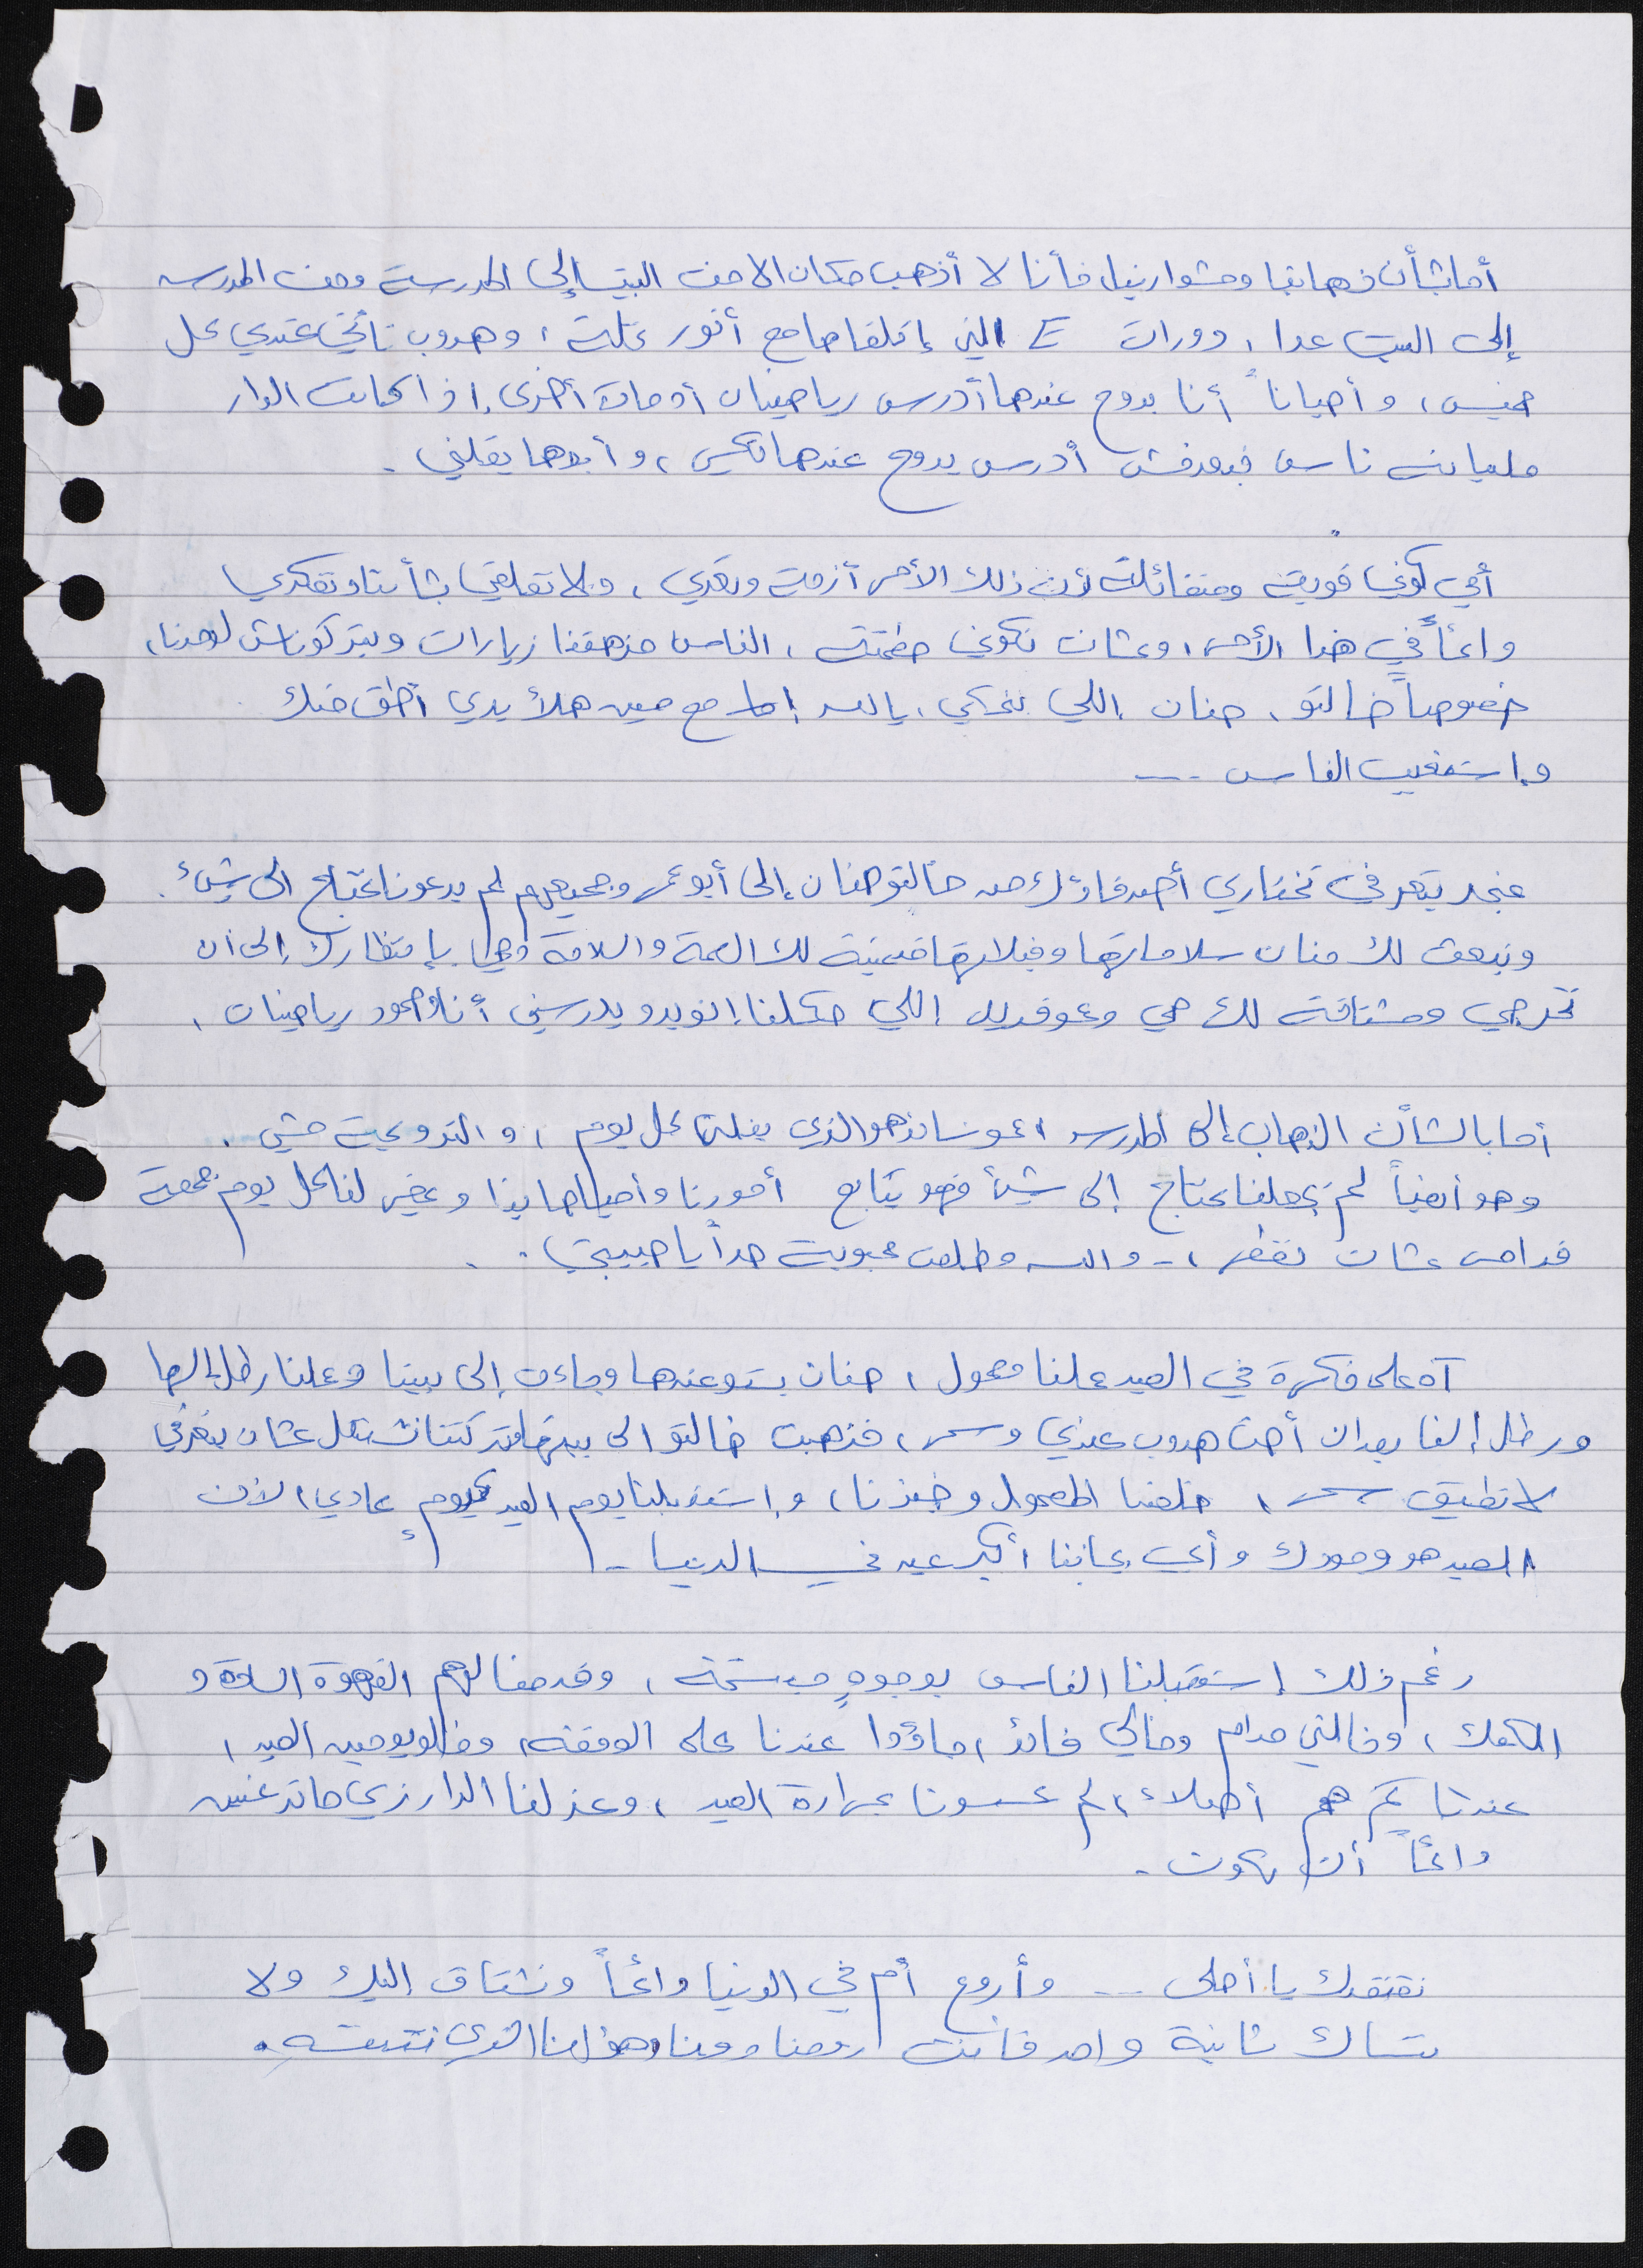 أما بشأن ذهابنا ومشوارينا، فأنا لا أذهب مكان الا من البيت إلى المدرسة ومن المدرسه
إلى البيت عدا، دورات E التي إتلقاها مع أنور نخلة، وهدوب تأتي عندي كل
خميس، و أحياناً أنا بروح عندها أدرس رياضيات أو مادة أخرى، إذا كانت الدار
مليانه ناس فبعرفش أدرس بروح عندها تكسي، و أبوها بقلني.
أمي كوني قوية ومتفائلة لأن ذلك الأمر أزمة وتعدي، ولا تقلقي بشأننا وتفكري
دائماً في هذا الأمر، وعشان تكوني مطمئنة، الناس مزهقنا زيارات وبتركوناش لوحدنا،
خصوصاً خالتو، حنان اللي بتحكي، يا الله إطلع مع مين هلأ بدي أطق حنك
وإستغيب الناس ---
عنجد بتعرفي تختاري أصدقاؤك من خالتو حنان إلى أبو عمر وجميعهم لم يدعونا نحتاج الى شيء.
وتبعث لك حنان سلاماتها وقبلاتها متمنية لك الصحة والسلامة وهي بإنتظارك إلى أن
تخرجي ومشتاقة لك هي وعمو فريد اللي حكلنا إنو بدو يدرسني أنا ومحمود رياضيات.
أما بالشأن الذهاب إلى المدرسه، عمو سائد هو الذي يقلنا كل يوم، و الترويحة مشي.
وهو أيضاً لم يجعلنا نحتاج إلى شيئاً فهو يتابع أمورنا وأحياجاتنا ويحضر لنا كل يوم جمعة
قدامى عشان نفطر، - والله وطلعت محبوبة جداً يا حبيبتي.
آه على فكرة في العيد عملنا معمول، حنان بستو عندها وجاءت إلى بيتنا وعملنا رطل إلها
ورطل إلنا بعد ان أجت هدوب عندي وسحر، فذهبت خالتو الى بيتها وتركتنا نشتغل عشان بتعرفي
لا تطيق سحر، خلصنا المعمول وخبزنا، وإستقبلنا يوم العيد كيومٍ عادي، الأن
العيد هو وجودك وأبي بجانبنا أكبر عيد في الدنيا -
رغم ذلك إستقبلنا الناس بوجوهٍ مبتسمة، وقدمنا لهم القهوة السادة و
الكعك، وخالتي مرام وخالي خالد، جاؤوا عندنا على الوقفة، وضلو يومين العيد،
عندنا كم هم أصلاء، لم يحسسونا بمرارة العيد، وعزلنا الدار زي ما تر غبين
دائماً أن تكون.
نفتقدك يا أحلى --- وأروع أم في الدنيا دائماً ونشتاق اليك ولا
ننساك ثانية واحد فانت روحنا ودمنا وهوائنا الذي نتنفسه.